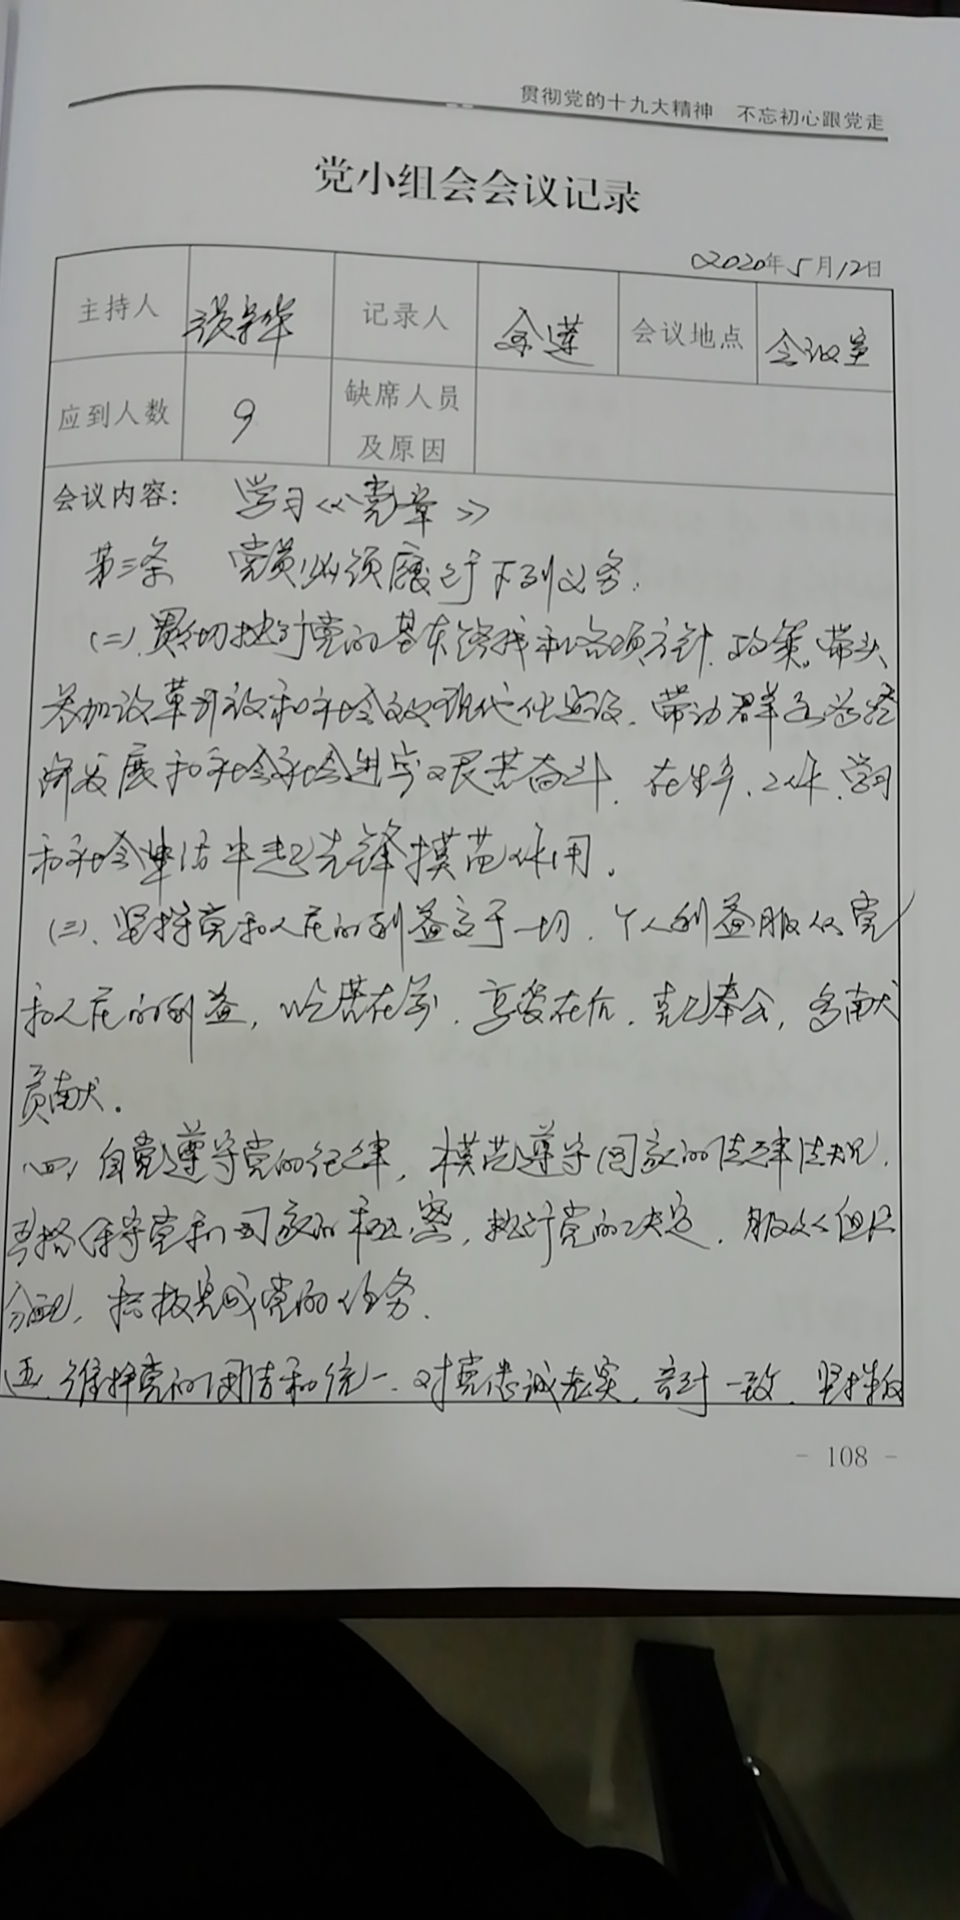 贯彻党的十九大精神 不忘初心跟党走
党小组会会议记录
2020年5月12日
主持人 记录人 会议地点 会议室
应到人数 9 缺席人员
及原因
会议内容: 学习《党章》
第三条 党员必须履行下列义务:
(二)、贯彻执行党的基本路线和各项方针、政策,带头
参加改革开放和社会主义现代化建设,带动群众为经
济发展和社会社会进步艰苦奋斗,在生产、工作、学习
和社会生活中起先锋模范作用。
(三)、坚持党和人民的利益高于一切,个人利益服从党
和人民的利益,吃苦在前,享受在后,克己奉公,多献
贡献。
(四)自觉遵守党的纪律,模范遵守国家的法律法规,
严格保守党和国家的秘密,执行党的决定,服从组织
分配,积极完成党的任务。
(五、维护党的团结和统一,对党忠诚老实,言行一致,坚决
- 108 -